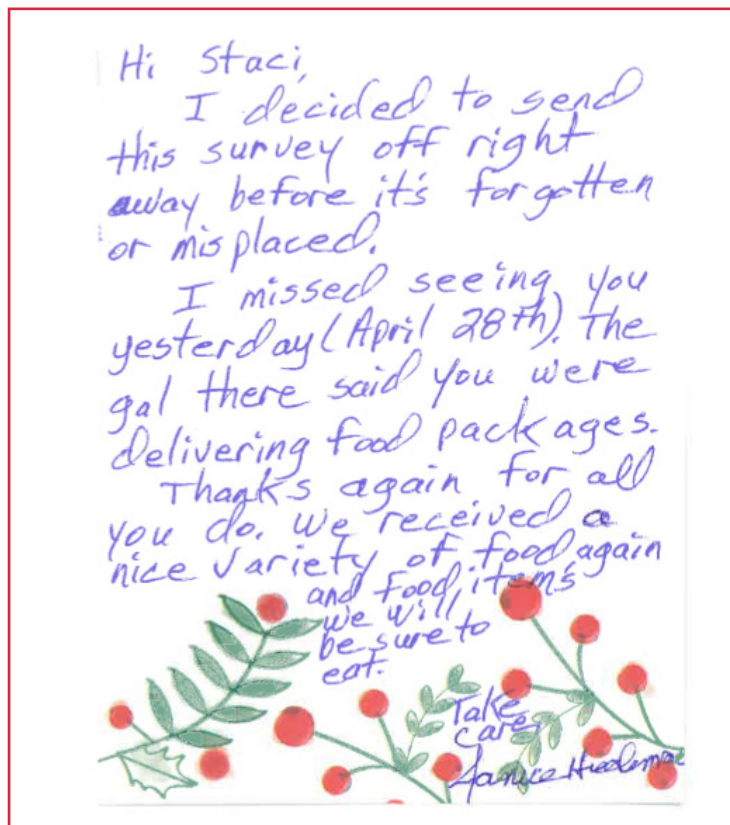 Hi Staci,
I decided to send
this survey off right
away before it's forgotten
or misplaced.
I missed seeing you
yesterday (April 28th). The
gal there said you were
delivering food packages.
Thanks again for all
you do. We received a
nice variety of food again
and food items
we will
be sure to
eat.
Take
care,
Janice